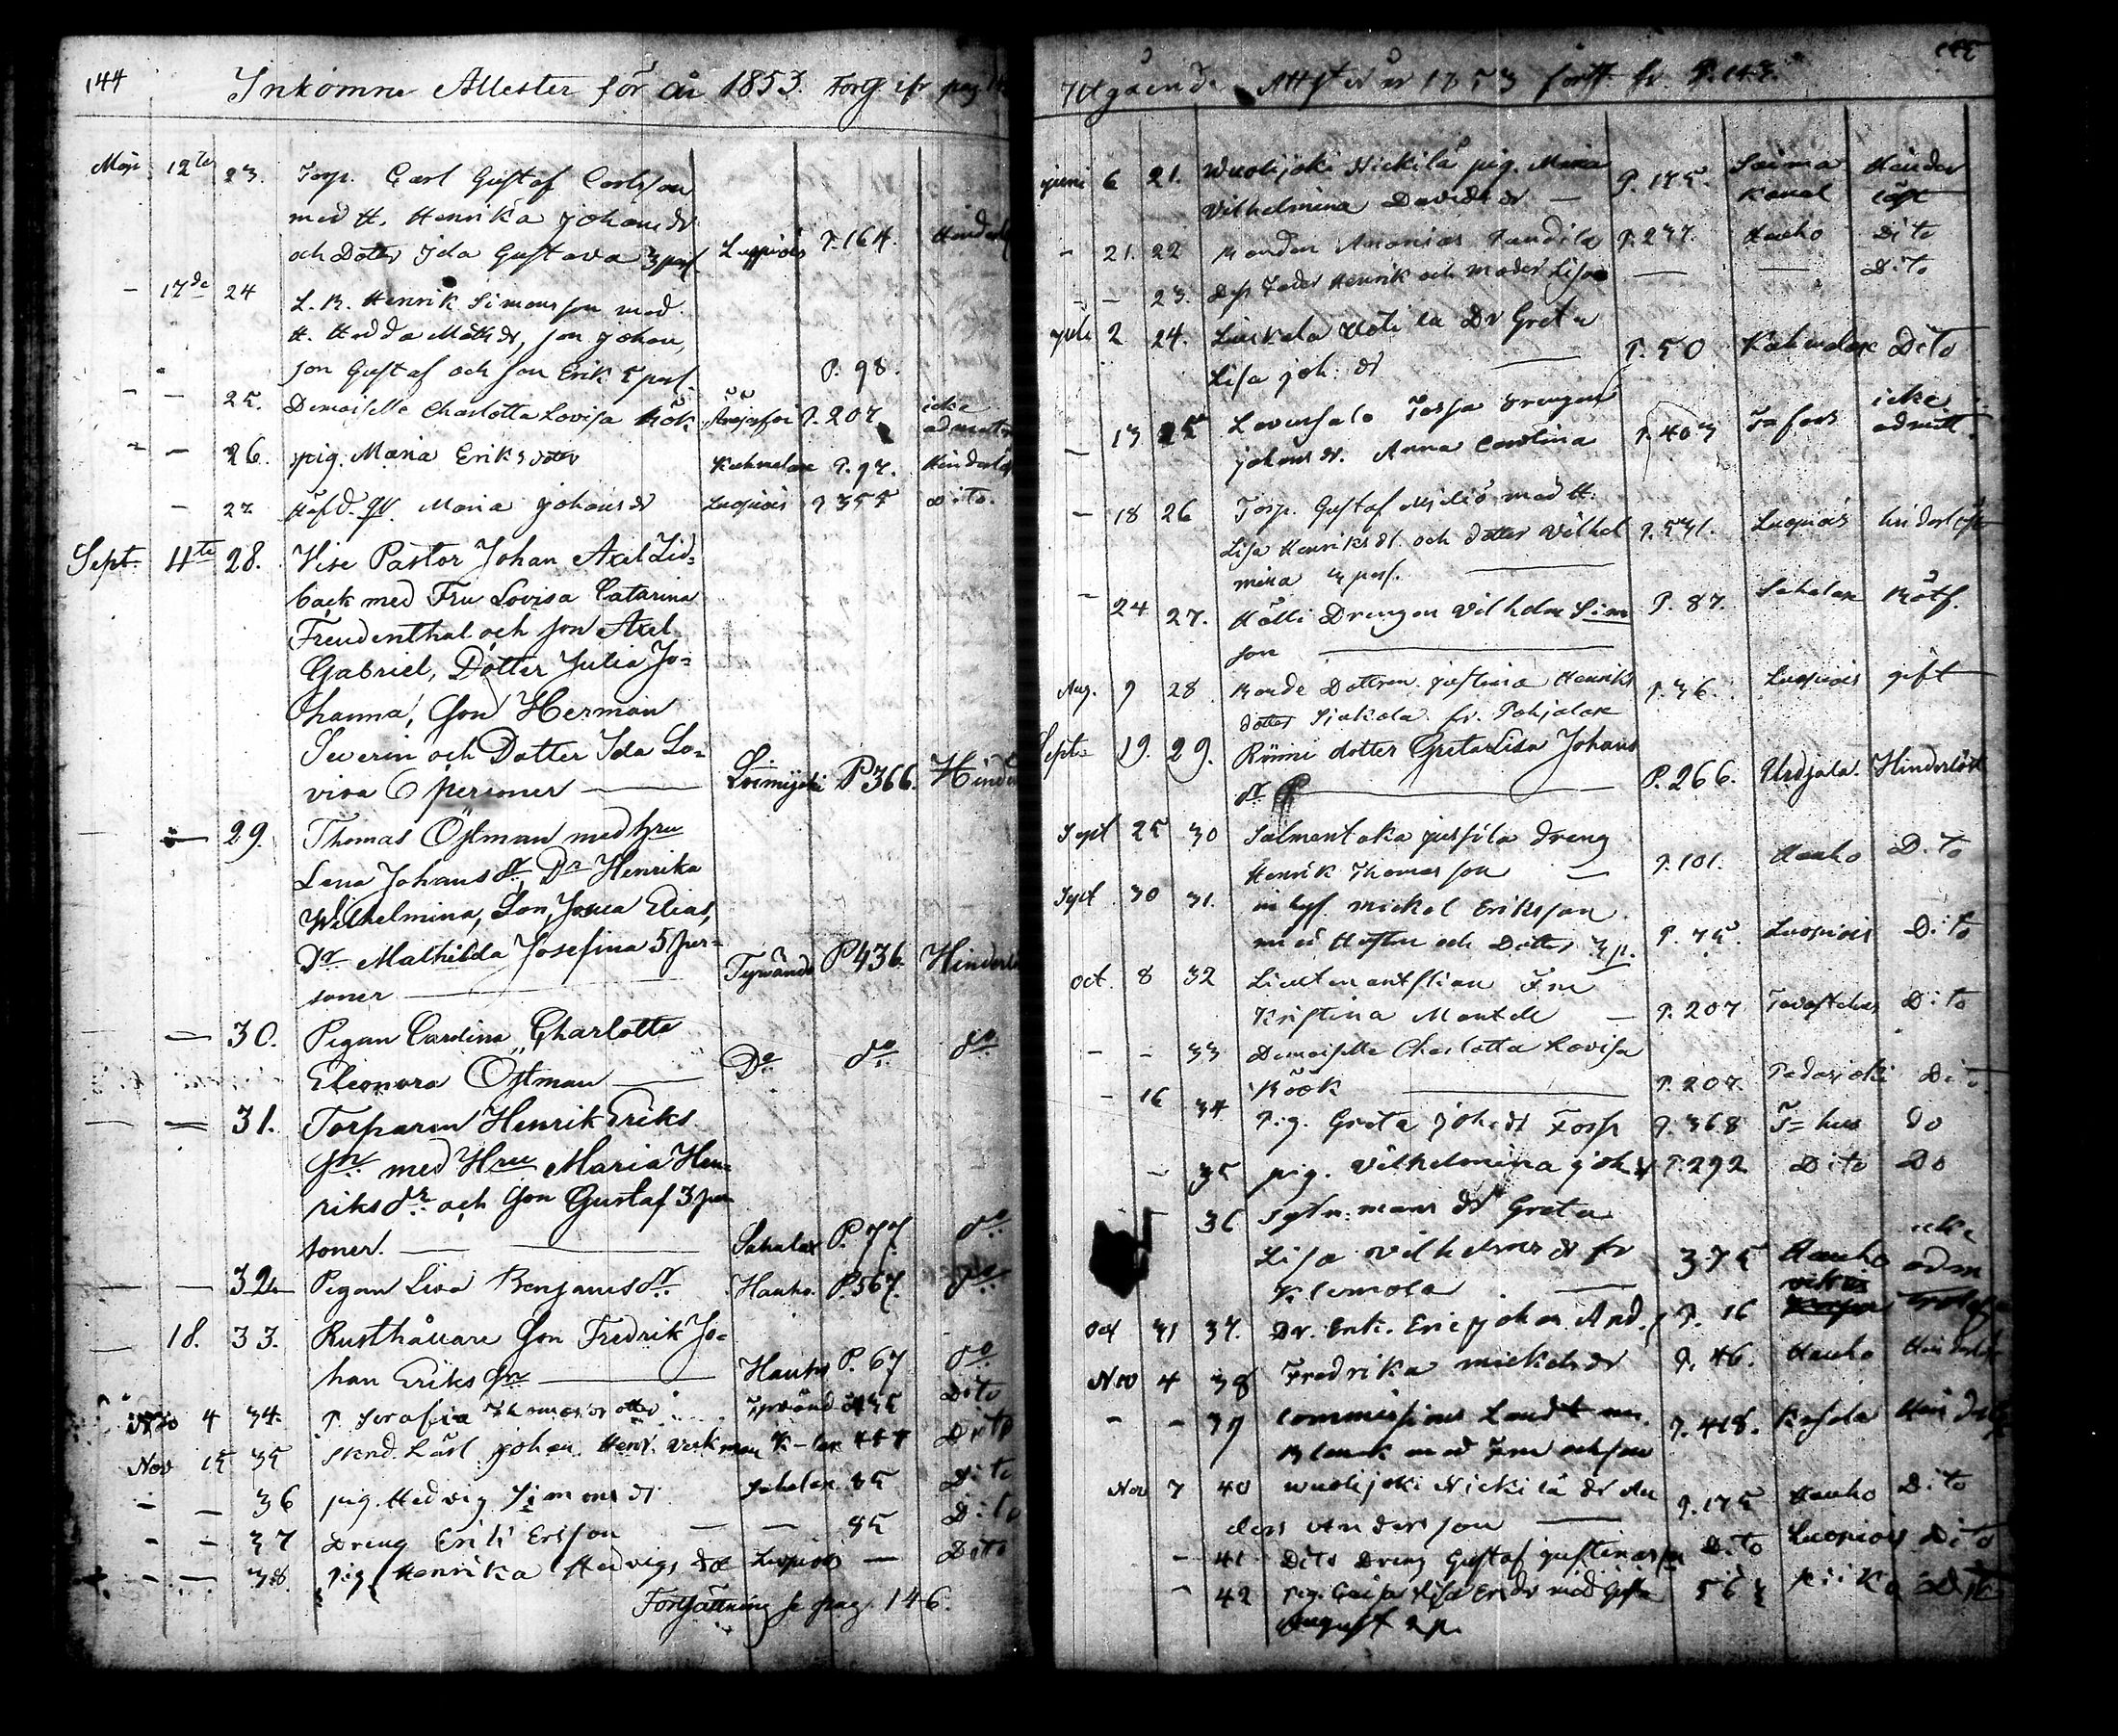 144
Inkomne Attester för år 1853. Forts ifr pag
Maji 12te 23. Torp. Carl Gustaf Carlsson
med H. Henrika Johansdr
och Dotter Ida Gustava 3 pers Luopiois P. 164. Hinderl
- 17de 24 L. B. Henrik Simonsson med
H. Hedda Matsdr, son Johan,
son Gustaf och son Erik 5 pers. P. 98.
- - 25. Demoiselle Charlotta Lovisa Höök P. 207 icke admitt
- - 26. pig. Maria Eriksdotter Kuhmalax P. 97. Hinderlös
- 27 Maria Johansdr Luopiois P 355 Dito.
Sept. 4te 28. Vise Pastor Johan Axel Lid=
back med Fru Lovisa Catarina
Freudenthal och son Axel
Gabriel, Dotter Julia Jo=
hanna, Son Herman
Severin och Dotter Ida Lo=
visa 6 personer Loimijoki P 366. Hinde
29. Thomas Östman med hru
Lena Johans dr, Dr Henrika
Wilhelmina, Son Josua Elias,
Dr Mathilda Josefina 5 per=
soner Tyrvändö P 436. Hinderl
30. Pigan Carolina Charlotta
Eleonora Östman Do do do
31. Torparen Henrik Eriks
Sn med Hru Maria Hen=
riksdr och Son Gustaf 3 per
soner. Sahalax P. 77. do
32. Pigan Lisa Benjamsdr. Hauho. P. 567. do
18. 33. Rusthållare Son Fredrik Jo=
han Eriks Sn Hauho P. 67 do
4 34. P. Serafia Thomasdotter Tyrvändö 435 Dito
Nov 15 35 Johan Henr. Verkman K-lax Dito
- - 36 pig. Hedvig Simonsdr Sahalax 85 Dito
- - 37 Dreng Erik Ersson — — 85 Dito
- - 38. pig Henrika Hedvigs dr Luopiois — Dito
Fortsättning se pag. 146.
145
Utgående Attester år 1853 forts. fr. P. 143.
juni 6 21. Wuolijoki Nickilä pig. Maria
Vilhelmina Davidsdr — P. 175. Saima Kanal Hinder löst
- 21. 22 Bonden Ananias P. 237. Hauho Dito
- - 23. Dess Fader Henrik och moder Lisa — — Dito
juli 2 24. Dr Greta
Lisa joh: dr P. 50 Kuhmalax Dito
- 13 25 drengen
johans dr. Anna Carolina P. 403 icke admitt.
- 18 26 Torp. Gustaf med H.
Lisa Henriksdr. och dotter Vilhel
mina 3 pers. P. 531. Luopiois hinderlöst
- 24 27. Hölli Drengen Vilhelm Sim
son P. 87. Sahalax
Aug. 9 28 Bonde Dottren justina Henriks
dotter Sjokola fr. Pohjalax P. 36. Luopiois gift
Sept. 19. 29. dotter Greta Lisa Johans
dr P. 266. Urdjala. Hinderlöst
Sept 25 30 Salmentaka jussila dreng
Henrik Thomasson — P. 101. Hauho Dito
Sept 30 31. inhys. mickel Eriksson
med Hustru och Dotter 3 p. P. 75. Luopiois Dito
Oct. 8 32 Fru
Kristina — P. 207 Tavastehus Dito
- - 33 Demoiselle Charlotta Lovisa
Höök P. 207. Padasjoki Dito
- 16 34 Pig. Greta johsdr P. 368 T=hus do
- 35 pig. Vilhelmina joh dr P. 292 Dito Do
- 36 Greta
Lisa Vilhelms dr fr
Klemola — 375 Hauho icke adm
Oct 31 37. Dr. Enk. Eric johan And. P. 16
Nov 4 38 Fredrika mickelsdr P. 46. Hauho Hinderl
- - 39 Commissions Landtm.
Blank med Fru och son P. 418. Hinderlös
Nov 7 40 Wuolijoki Nickilä dr An
ders Andersson P. 175 Hauho Dito
- 41 Dito Dreng Gustaf justinasson Dito Luopiois Dito
- 42 Pig. Caisa Lisa Ersdr med
August 2 p. 563 Dito